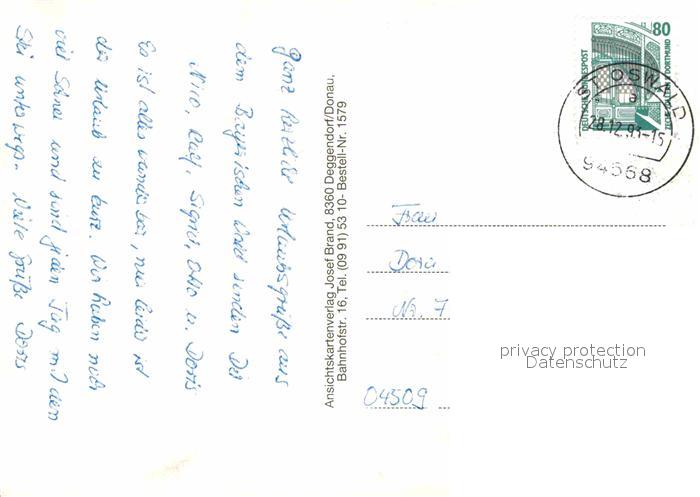 Ganz herzliche Urlaubsgrüße aus
dem Bayrischen Wald senden Dir
Nico, Ralf, Sigrid, Otto u. Doris
Es ist alles wunderbar, nur leider ist
der Urlaub zu kurz. Wir haben noch
viel Schnee und sind jeden Tag mit den
Ski unterwegs. Viele Grüße Doris
Ansichtskartenverlag Josef Brand, 8360 Deggendorf/Donau,
Bahnhofstr. 16, Tel. (09 91) 53 10- Bestell-Nr. 1579
80
DEUTSCHE BUNDESPOST
ZECHE ZOLLERN II DORTMUND
ST. OSWALD
a
28.12.93-15
94568
Frau
Doris
Nr. 7
04509
privacy protection
Datenschutz